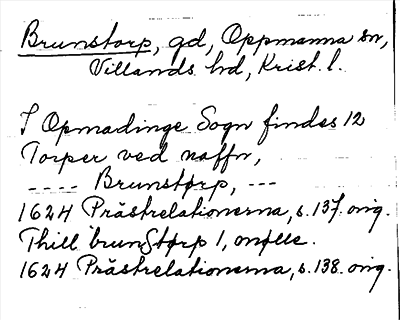 Brunstorp, gd, Oppmanna sn,
Villands hd, Krist. l.
I Opmadinge Sogn findes 12
Torper ved naffn,
---- Brunstørp, ---
1624 Prästrelationerna, s. 137. orig.
Thill brunstørp 1, mølle.
1624 Prästrelationerna, s. 138. orig.